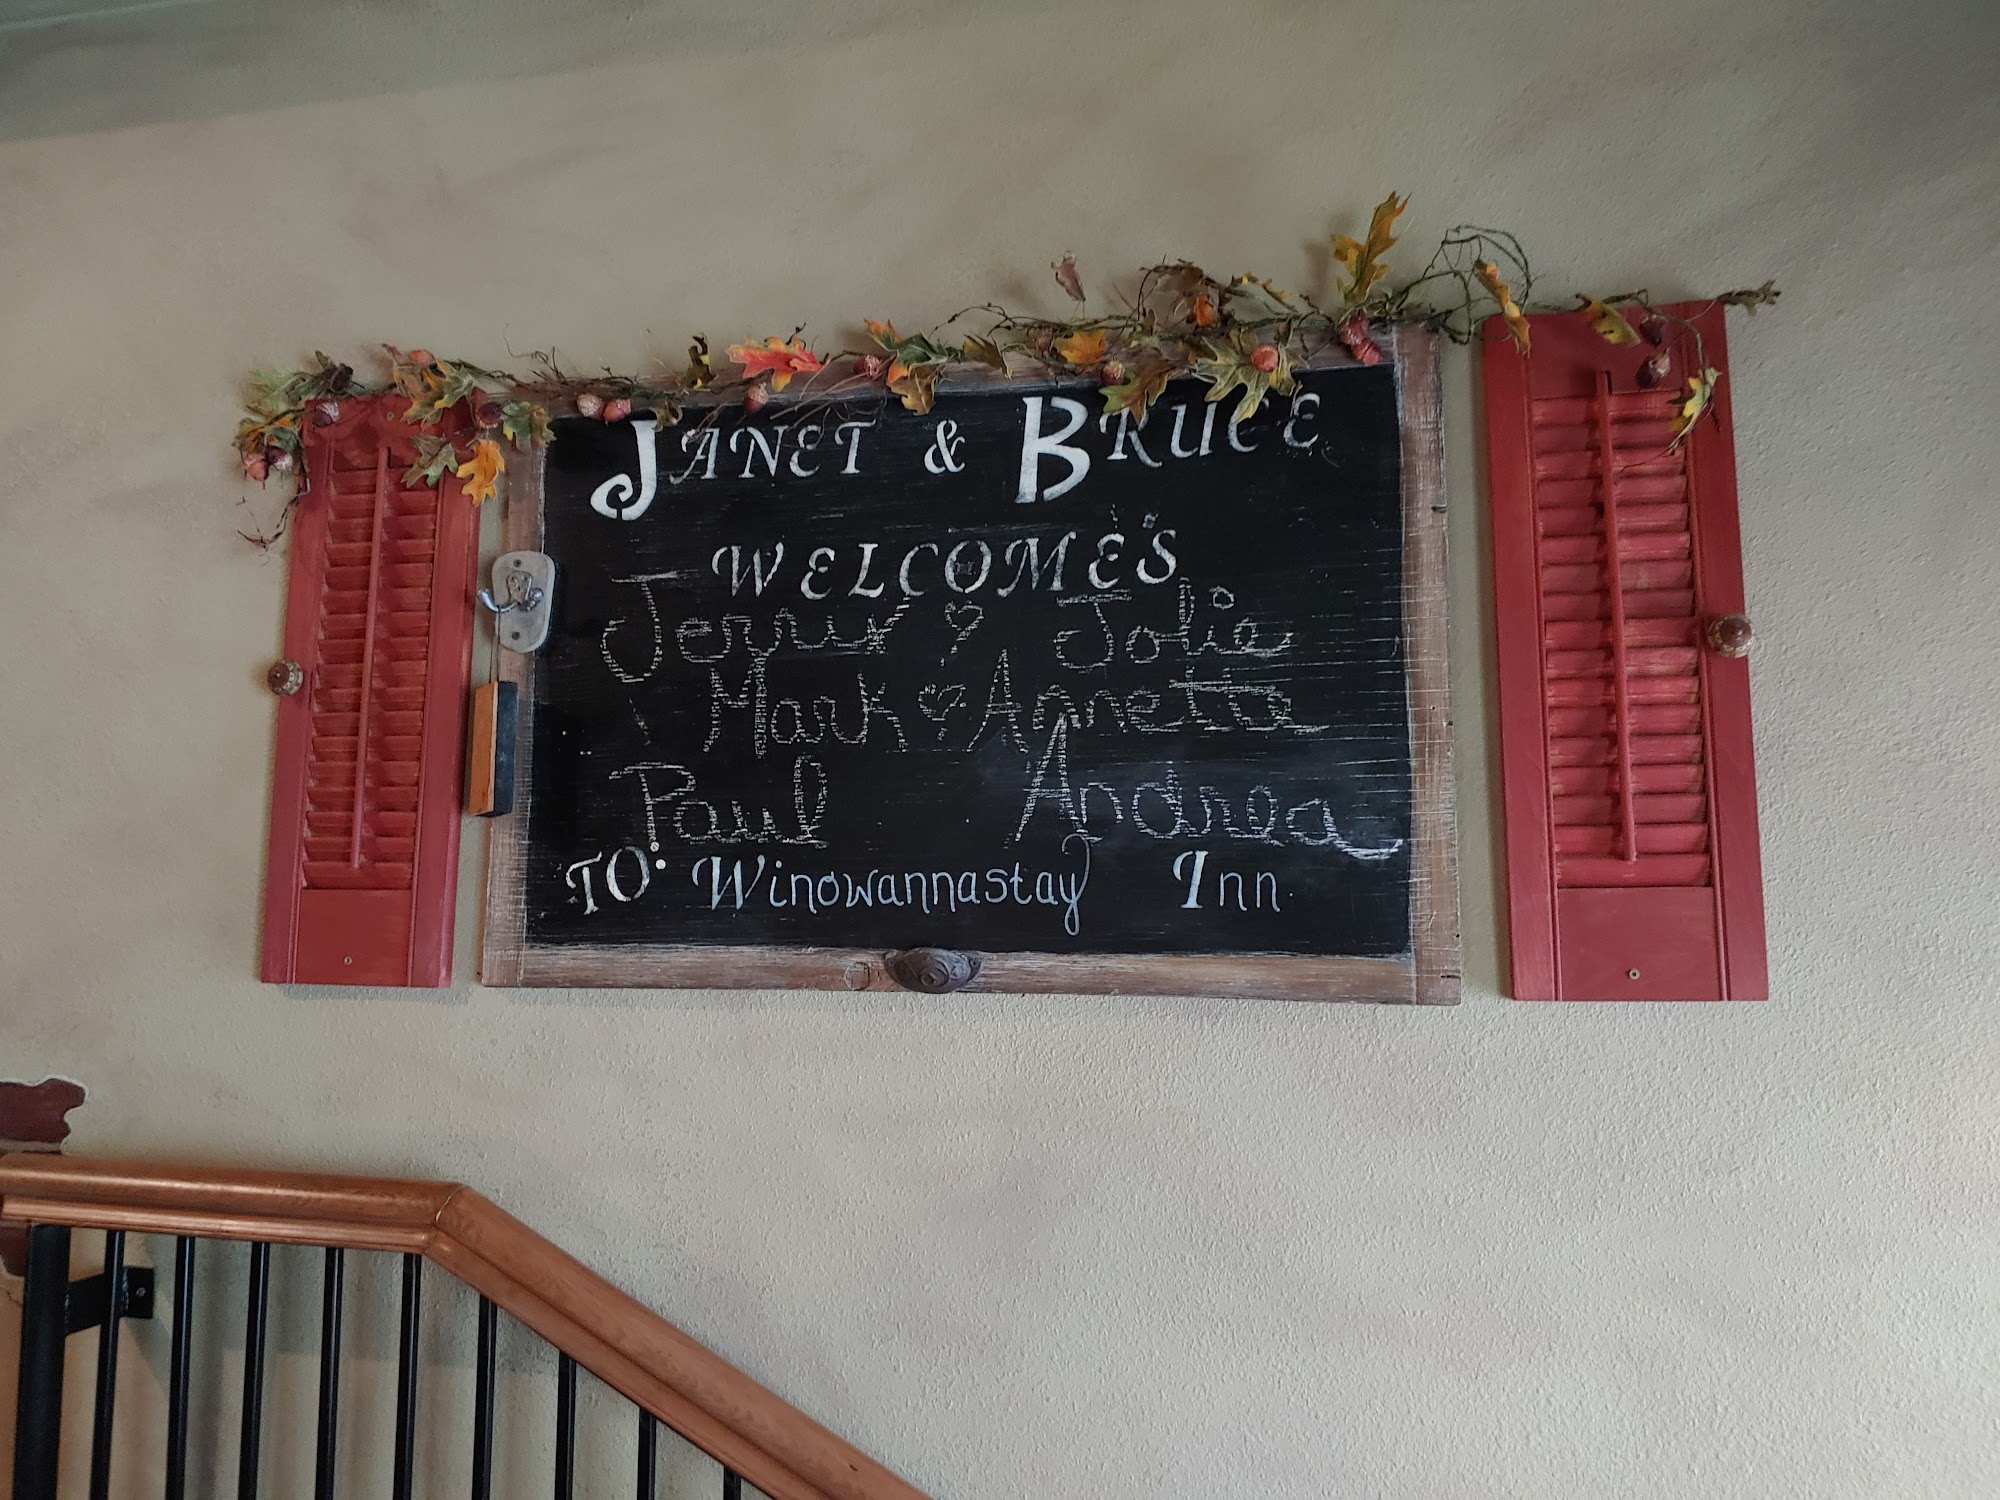 JANET & BRUCE
WELCOMES
Jerry Jolie
Mark & Annette
Paul Andrea
TO: Winowannastay Inn